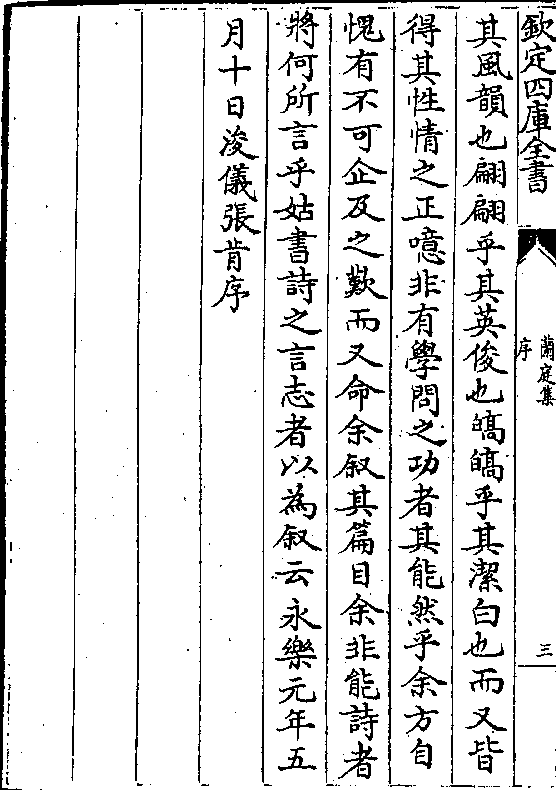 欽定四庫全書
蘭庭集
序
三
其風韻也翩翩乎其英俊也皜皜乎其潔白也而又皆
得其性情之正噫非有學問之功者其能然乎余方自
愧有不可企及之歎而又命余叙其篇目余非能詩者
將何所言乎姑書詩之言志者以為叙云永樂元年五
月十日浚儀張肯序